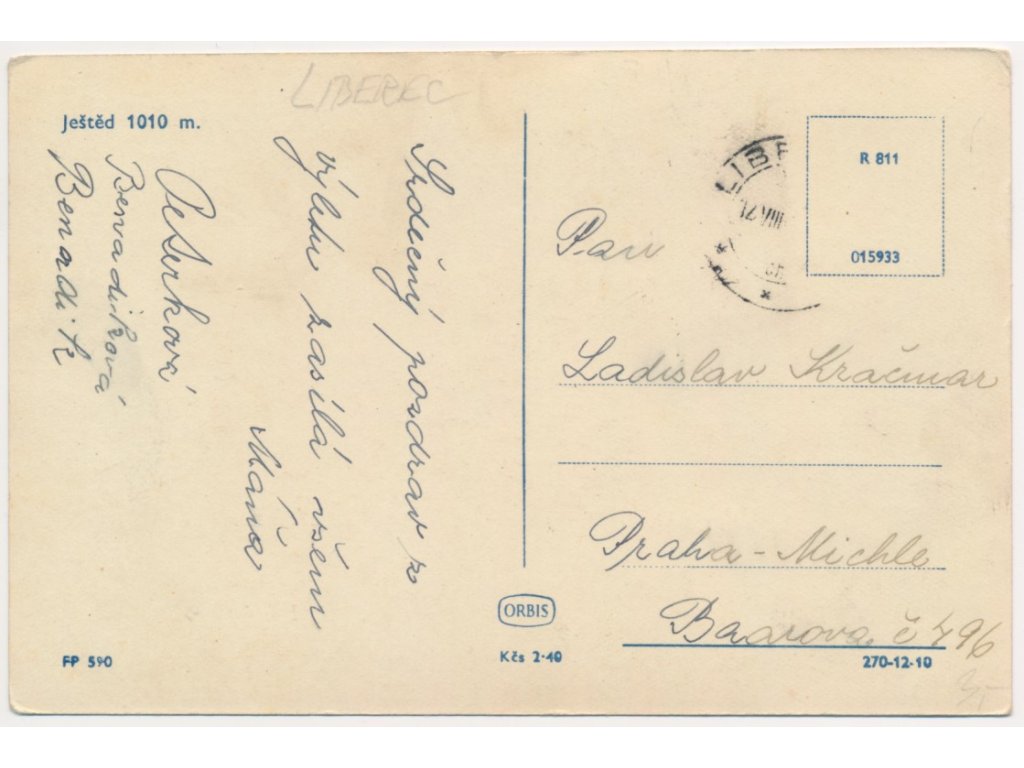 LIBEREC
Ještěd 1010 m.
Srdečný pozdrav z
výletu zasílá všem
Máňa
Peterková
Benadiková
Benadik
R 811
015933
LIBE
Pan
Ladislav Kračmar
Praha-Michle
Baarova č 496
ORBIS
FP 590
Kčs 2·40
270-12-10